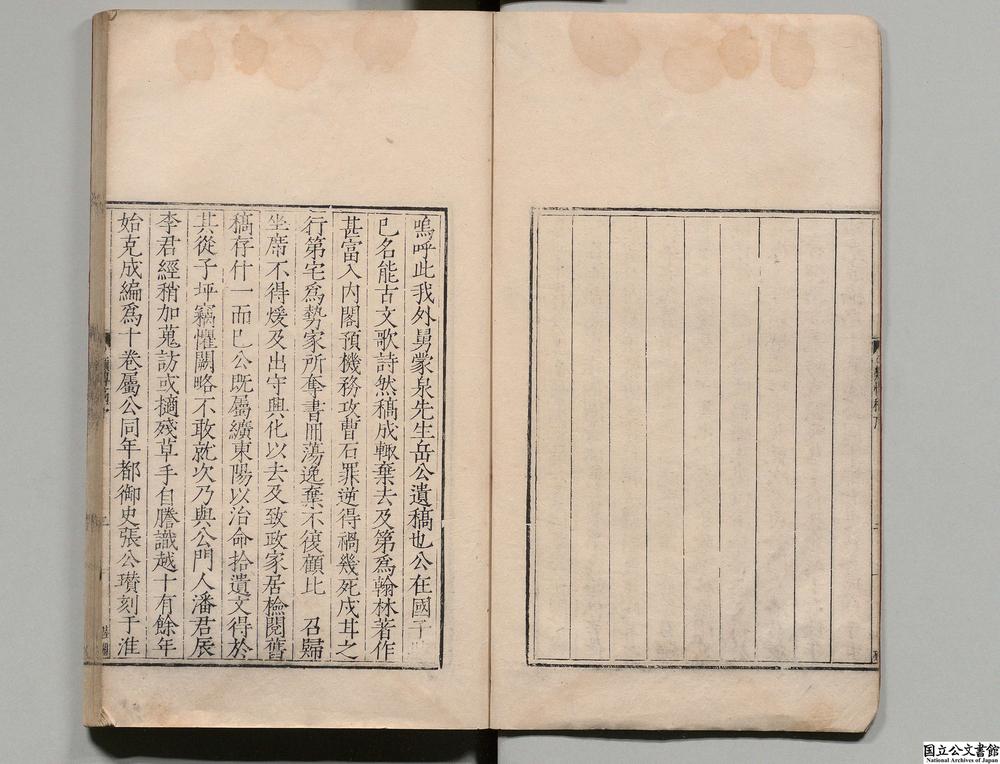 嗚呼此我外舅蒙泉先生岳公遺稿也公在國子
已名能古文歌詩然稿成輙棄去及第為翰林著作
甚富入內閣預機務攻曹石罪逆得禍幾死戍甘之
行第宅為勢家所奪書冊蕩逸棄不復顧比 召歸
坐席不得煖及出守興化以去及致政家居檢閱舊
稿存什一而已公既屬纊東陽以治命拾遺文得於
其從子坪竊懼闕略不敢就次乃與公門人潘君辰
李君經稍加蒐訪或摘殘草手自謄識越十有餘年
始克成編為十卷屬公同年都御史張公瓚刻于淮
国立公文書館
National Archives of Japan